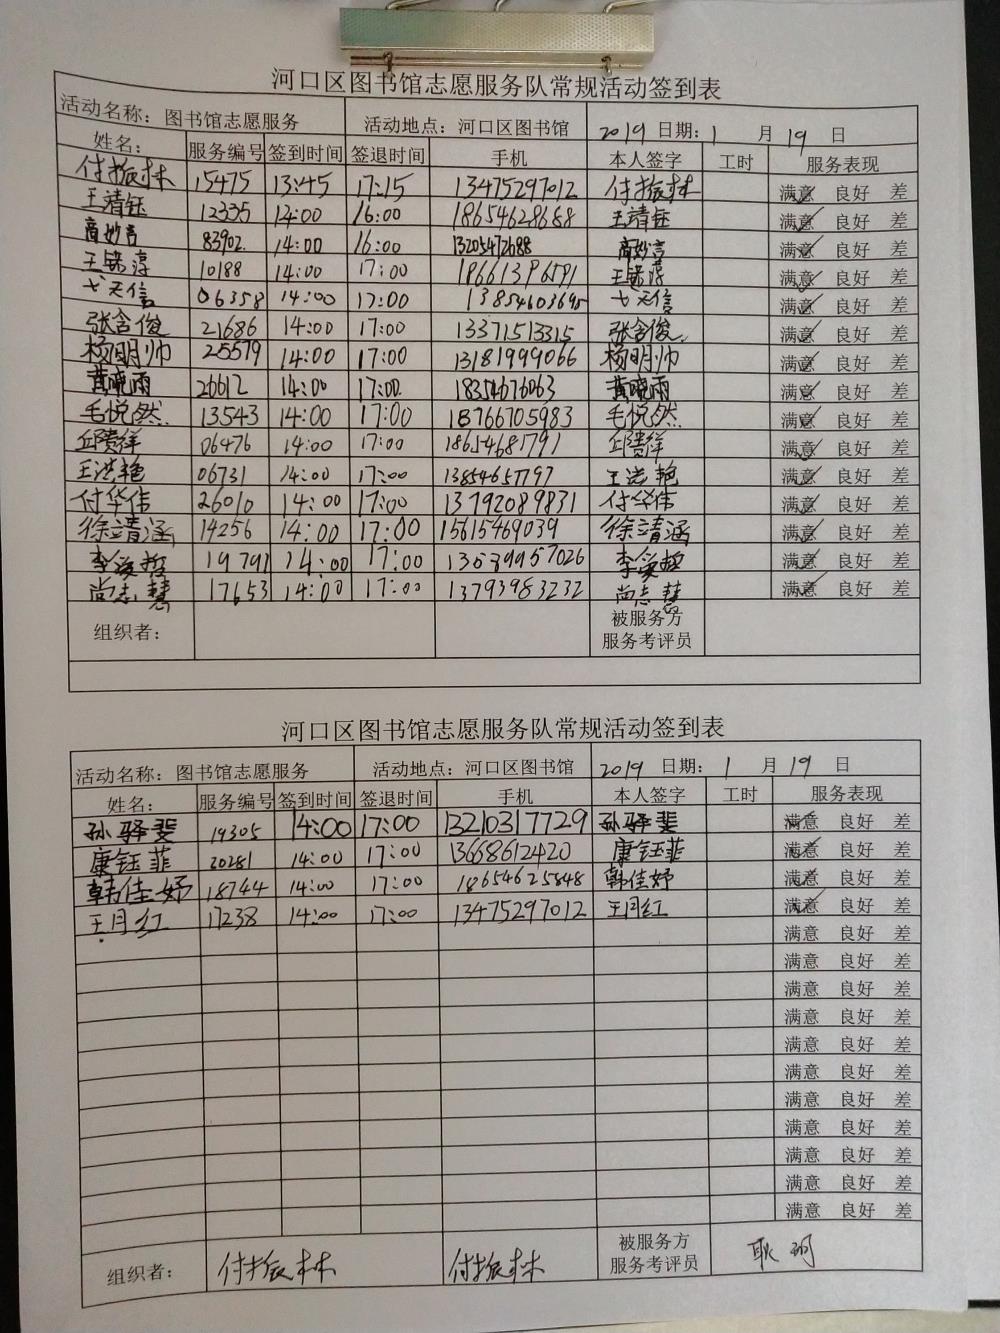 河口区图书馆志愿服务队常规活动签到表
活动名称：图书馆志愿服务 活动地点：河口区图书馆 2019 日期：1 月 19 日
姓名： 服务编号 签到时间 签退时间 手机 本人签字 工时 服务表现
付振林 15475 13:45 17:15 13475297012 付振林 满意 良好 差
王靖钰 12335 14:00 16:00 18654628688 王靖钰 满意 良好 差
商妙言 83902 14:00 16:00 13205472688 商妙言 满意 良好 差
王 10188 14:00 17:00 王 满意 良好 差
弋天信 06358 14:00 17:00 13854603695 弋天信 满意 良好 差
张含俊 21686 14:00 17:00 13371513315 张含俊 满意 良好 差
杨明帅 25579 14:00 17:00 13181999066 杨明帅 满意 良好 差
黄晓雨 26612 14:00 17:00 18354676063 黄晓雨 满意 良好 差
毛悦然 13543 14:00 17:00 18766705983 毛悦然 满意 良好 差
邱 06476 14:00 17:00 18654681791 邱 满意 良好 差
王洪艳 06731 14:00 17:00 13854657797 王洪艳 满意 良好 差
付华伟 26010 14:00 17:00 13792089831 付华伟 满意 良好 差
徐靖涵 14256 14:00 17:00 15615469039 徐靖涵 满意 良好 差
李 19791 14:00 17:00 李 满意 良好 差
尚志慧 17653 14:00 17:00 13793983232 尚志慧 满意 良好 差
组织者： 被服务方
服务考评员
河口区图书馆志愿服务队常规活动签到表
活动名称：图书馆志愿服务 活动地点：河口区图书馆 2019 日期：1 月 19 日
姓名： 服务编号 签到时间 签退时间 手机 本人签字 工时 服务表现
孙驿斐 19305 14:00 17:00 13210317729 孙驿斐 满意 良好 差
康钰菲 20281 14:00 17:00 13658612420 康钰菲 满意 良好 差
韩佳妤 18744 14:00 17:00 18654625848 韩佳妤 满意 良好 差
王月红 17238 14:00 17:00 13475297012 王月红 满意 良好 差
满意 良好 差
满意 良好 差
满意 良好 差
满意 良好 差
满意 良好 差
满意 良好 差
满意 良好 差
满意 良好 差
满意 良好 差
满意 良好 差
满意 良好 差
组织者： 付振林 付振林 被服务方 耿
服务考评员